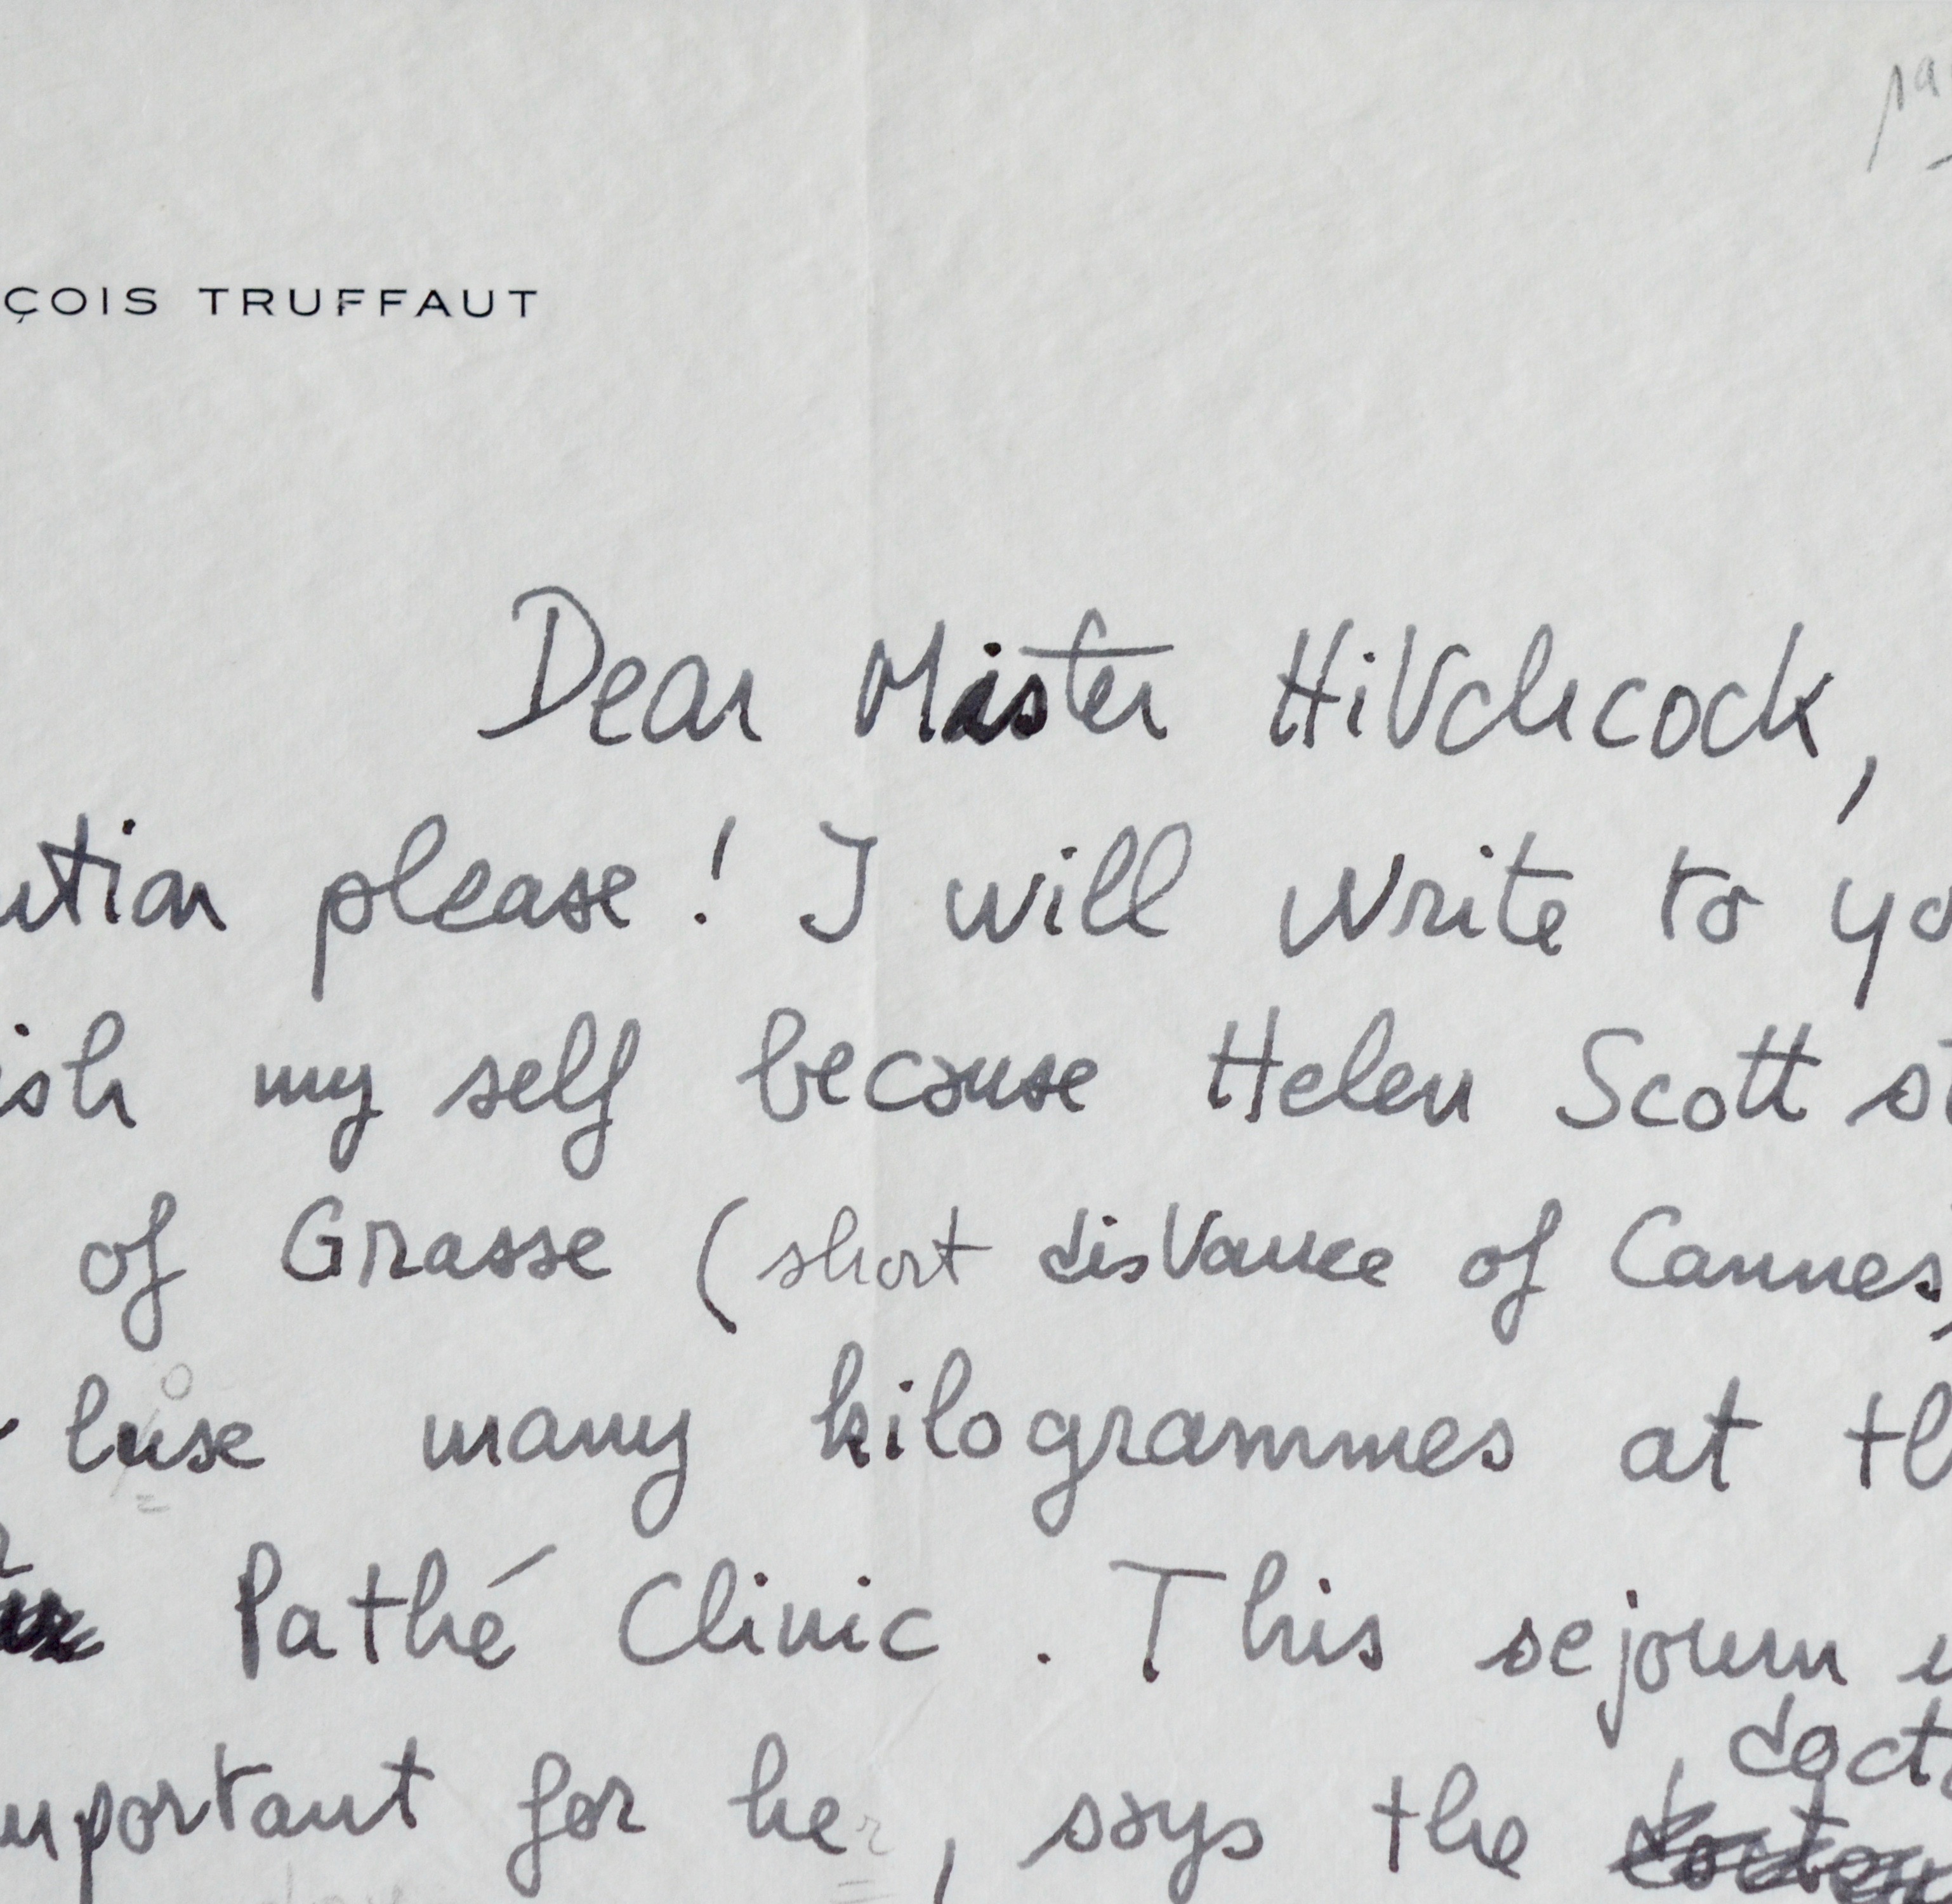 ÇOIS TRUFFAUT
Dear Mister Hitchcock,
please! I will write to
my self because Helen Scott
of Grasse (short distance of Cannes)
luse many kilogrammes at
Pathé Clinic. This sejourn
for her, says the